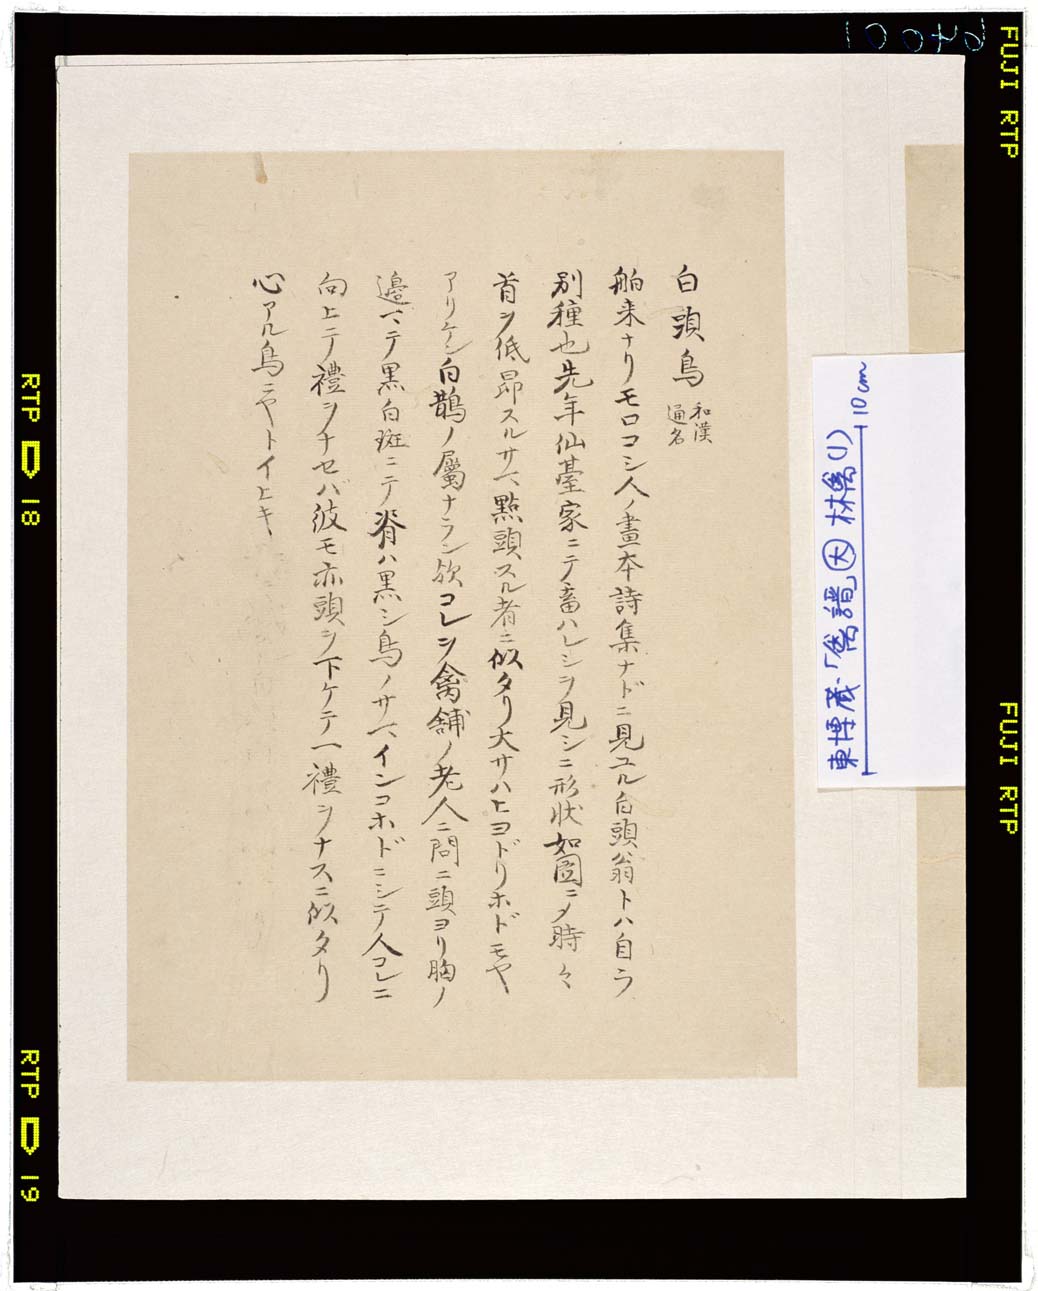 白頭鳥 和漢通名
舶来ナリモロコシ人ノ畫本詩集ナドニ見ユル白頭翁トハ自ラ
別種也先年仙臺家ニテ畜ハレシヲ見シニ形状如圖ニメ時々
首ヲ低昂スルサマ點頭スル者ニ似タリ大サハヒヨドリホドモヤ
アリケン白鵲ノ屬ナラン欤コレヲ禽舗ノ老人ニ問ニ頭ヨリ胸ノ
邊マテ黒白斑ニテ脊ハ黒シ鳥ノサマインコホドニシテ人コレニ
向ヒテ禮ヲナセバ彼モ亦頭ヲ下ケテ一禮ヲナスニ似タリ
心アル鳥ニヤトイヒキ
東博蔵「禽譜」大 林禽(1)
10cm
FUJI RTP
FUJI RTP
RTP 18
RTP 19